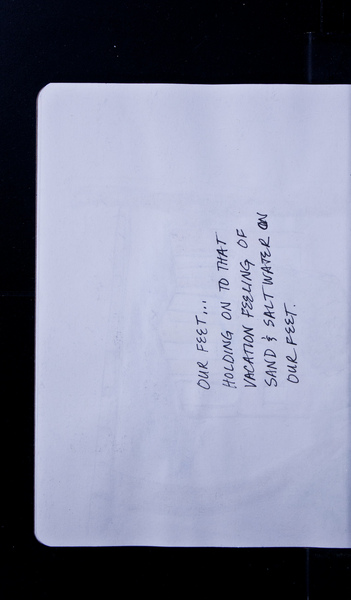 OUR FEET...
HOLDING ON TO THAT
VACATION FEELING OF
SAND & SALT WATER ON
OUR FEET.